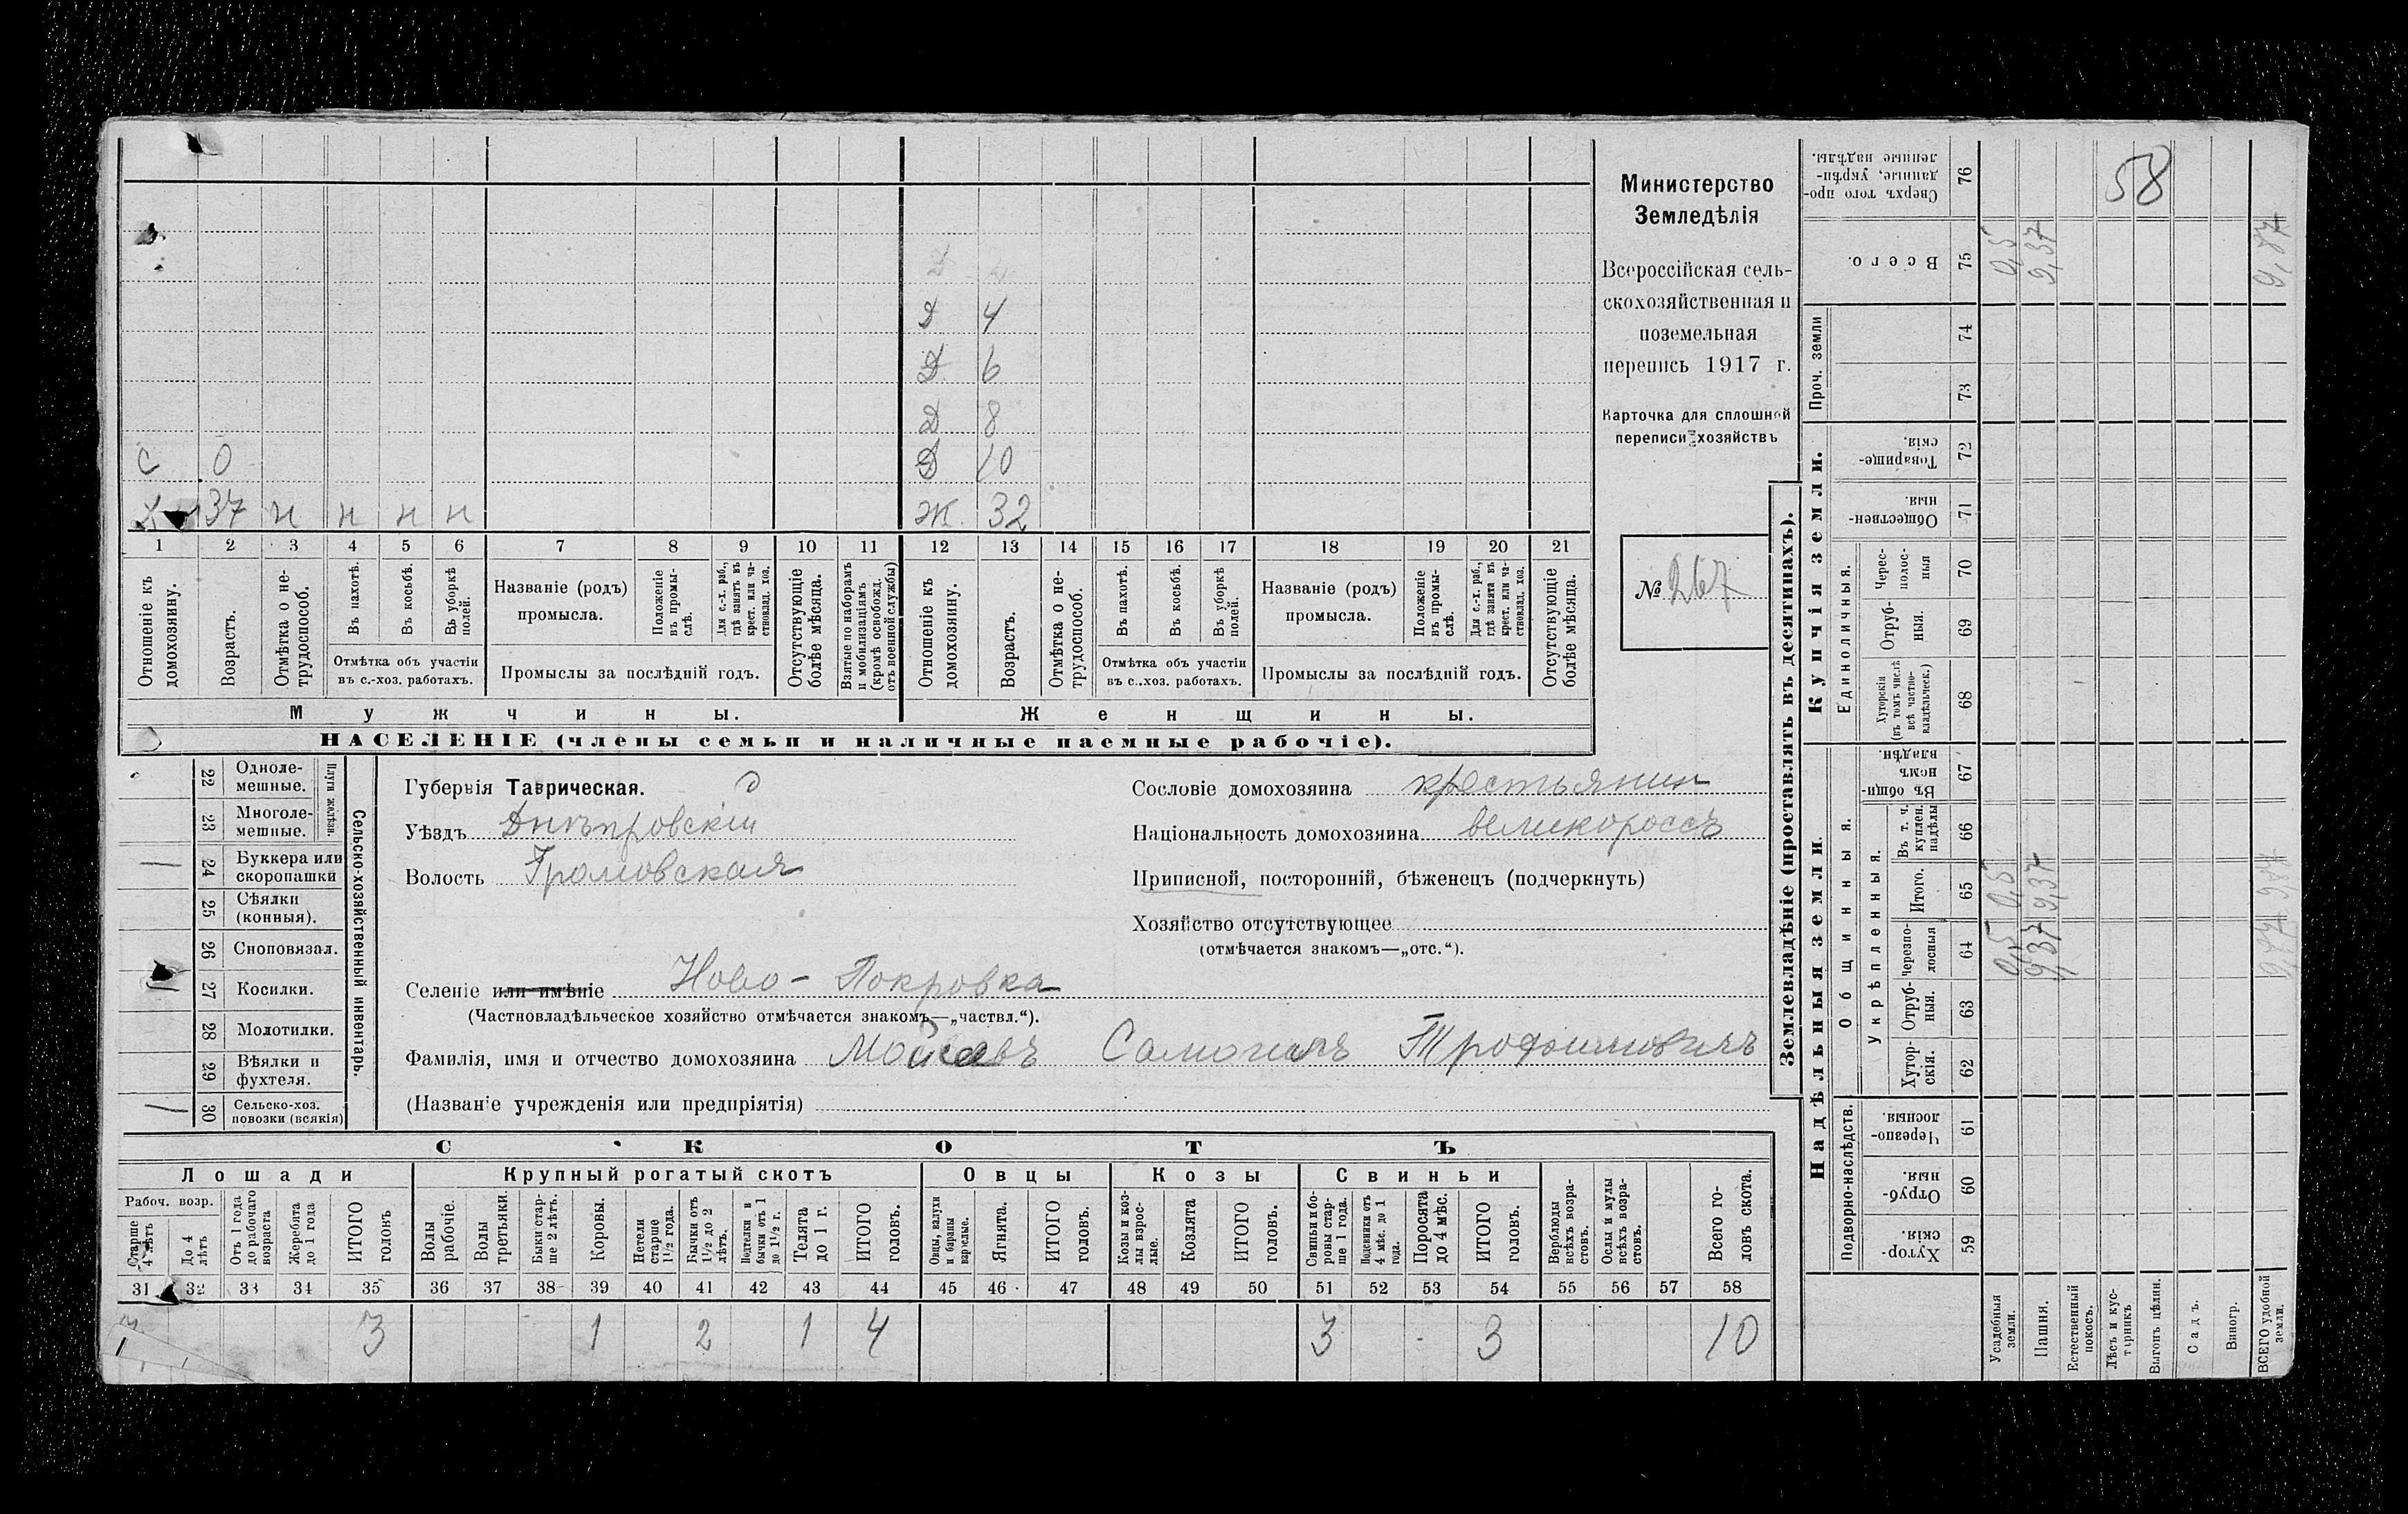 Министерство
Земледѣлія
Всероссійская сель-
скохозяйственная и
поземельная
перепись 1917 г.
Карточка для сплошной
переписи хозяйствъ
№ 267
Д 4
Д 6
Д 8
С 0 Д 10
Х 37 н н н н Ж 32
1 2 3 4 5 6 7 8 9 10 11 12 13 14 15 16 17 18 19 20 21
Отношеніе къ домохозяину.
Возрастъ.
Отмѣтка о не-трудоспособ.
Въ пахотѣ.
Въ косьбѣ.
Въ уборкѣ полей.
Отмѣтка объ участіи въ с.-хоз. работахъ.
Названіе (родъ) промысла.
Положеніе въ промы-слѣ.
Для с.-х. раб., гдѣ занятъ въ крест. или ча-стновлад. хоз.
Промыслы за послѣдній годъ.
Отсутствующіе болѣе мѣсяца.
Взятые по наборамъ и мобилизаціямъ (кромѣ освобожд. отъ военной службы)
Отношеніе къ домохозяину.
Возрастъ.
Отмѣтка о не-трудоспособ.
Въ пахотѣ.
Въ косьбѣ.
Въ уборкѣ полей.
Отмѣтка объ участіи въ с.-хоз. работахъ.
Названіе (родъ) промысла.
Положеніе въ промы-слѣ.
Для с.-х. раб., гдѣ занята въ крест. или ча-стновлад. хоз.
Промыслы за послѣдній годъ.
Отсутствующіе болѣе мѣсяца.
Мужчины. Женщины.
НАСЕЛЕНІЕ (члены семьи и наличные наемные рабочіе).
22 Одноле-мешные.
23 Многоле-мешные.
Плуги желѣзн.
24 Буккера или скоропашки
25 Сѣялки (конныя).
26 Сноповязал.
27 Косилки.
28 Молотилки.
29 Вѣялки и фухтеля.
30 Сельско-хоз. повозки (всякія)
Сельско-хозяйственный инвентарь.
Губернія Таврическая.
Уѣздъ Днѣпровскій
Волость Громовская
Сословіе домохозяина крестьянин
Національность домохозяина великороссъ
Приписной, посторонній, бѣженецъ (подчеркнуть)
Хозяйство отсутствующее
(отмѣчается знакомъ—„отс.“).
Селеніе или имѣніе Ново - Покровка
(Частновладѣльческое хозяйство отмѣчается знакомъ—„частвл.“).
Фамилія, имя и отчество домохозяина Трофимовичъ
(Названіе учрежденія или предпріятія)
СКОТЪ
Лошади Крупный рогатый скотъ Овцы Козы Свиньи
Рабоч. возр.
Старше 4 лѣтъ
До 4 лѣтъ
Отъ 1 года до рабочаго возраста
Жеребята до 1 года
ИТОГО головъ
Волы рабочіе.
Волы третьяки.
Быки стар-ше 2 лѣтъ.
Коровы.
Нетели старше 1½ года.
Бычки отъ 1½ до 2 лѣтъ.
Подтелки и бычки отъ 1 до 1½ г.
Телята до 1 г.
ИТОГО головъ.
Овцы, валухи и бараны взрослые.
Ягнята.
ИТОГО головъ.
Козы и коз-лы взрос-лые.
Козлята
ИТОГО головъ.
Свиньи и бо-ровы стар-ше 1 года.
Подсвинки отъ 4 мѣс. до 1 года.
Поросята до 4 мѣс.
ИТОГО головъ.
Верблюды всѣхъ возра-стовъ.
Ослы и мулы всѣхъ возра-стовъ.
Всего го-ловъ скота.
31 32 33 34 35 36 37 38 39 40 41 42 43 44 45 46 47 48 49 50 51 52 53 54 55 56 57 58
3 3 1 2 1 4 3 3 10
Землевладѣніе (проставлять въ десятинахъ).
Надѣльныя земли. Купчія земли. Проч. земли
Подворно-наслѣдств.
Общинныя.
Укрѣпленныя.
Единоличныя.
59 Хутор-скія.
60 Отруб-ныя.
61 Черезпо-лосныя.
62 Хутор-скія.
63 Отруб-ныя.
64 черезпо-лосныя
65 Итого.
66 Въ т. ч. куплен. надѣлы
67 Въ общи-номъ владѣн.
68 Хуторскія (въ томъ числѣ всѣ частно-владѣльческ.)
69 Отруб-ныя.
70 Черес-полос-ныя
71 Обществен-ныя.
72 Товарище-скія.
73
74
75 Всего.
76 Сверхъ того про-данные, укрѣп-ленные надѣлы.
58
Усадебныя земли. 0,5 0,5 0,5
Пашня. 9,37 9,37 9,37
Естественный покосъ.
Лѣсъ и кус-тарникъ
Выгонъ цѣлин.
Садъ.
Виногр.
ВСЕГО удобной земли. 9,87 9,87 9,87